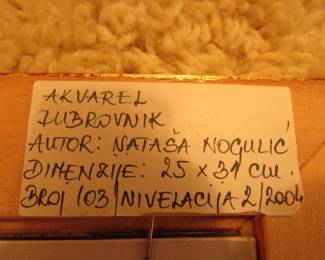 AKVAREL
DUBROVNIK
AUTOR: NATAŠA NOGULIĆ
DIMENZIJE: 25 x 31 cm.
BROJ 103/NIVELACIJA 2/2004